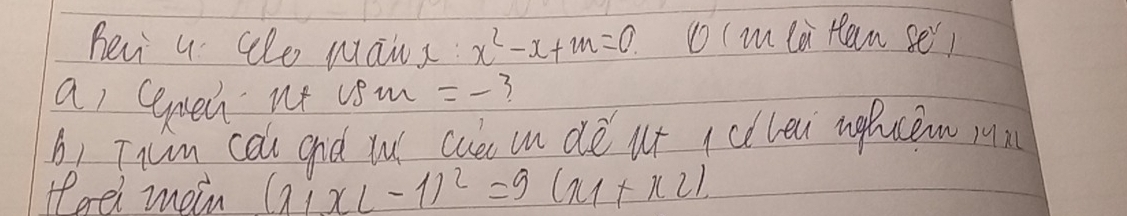 Bài 4: Cho pt ẩn x: x² - x + m = 0. (1) (m là tham số)
a, Giải pt với m = -3
b, Tìm các giá trị của m để pt 1 có hai nghiệm x1 x2
thoả mãn (x1 x2 - 1)² = 9 (x1 + x2).